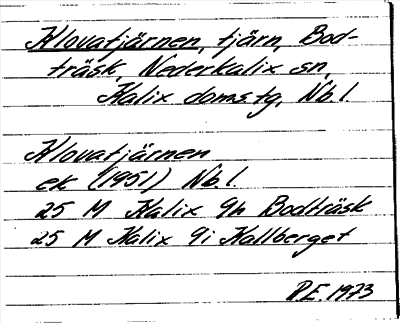 Klovatjärnen, tjärn, Bod-
träsk, Nederkalix sn,
Kalix doms.tg, Nb.l.
Klovatjärnen
ek (1951) Nb.l.
25 M Kalix 9h Bodträsk
25 M Kalix 9i Kallberget
R.E. 1973